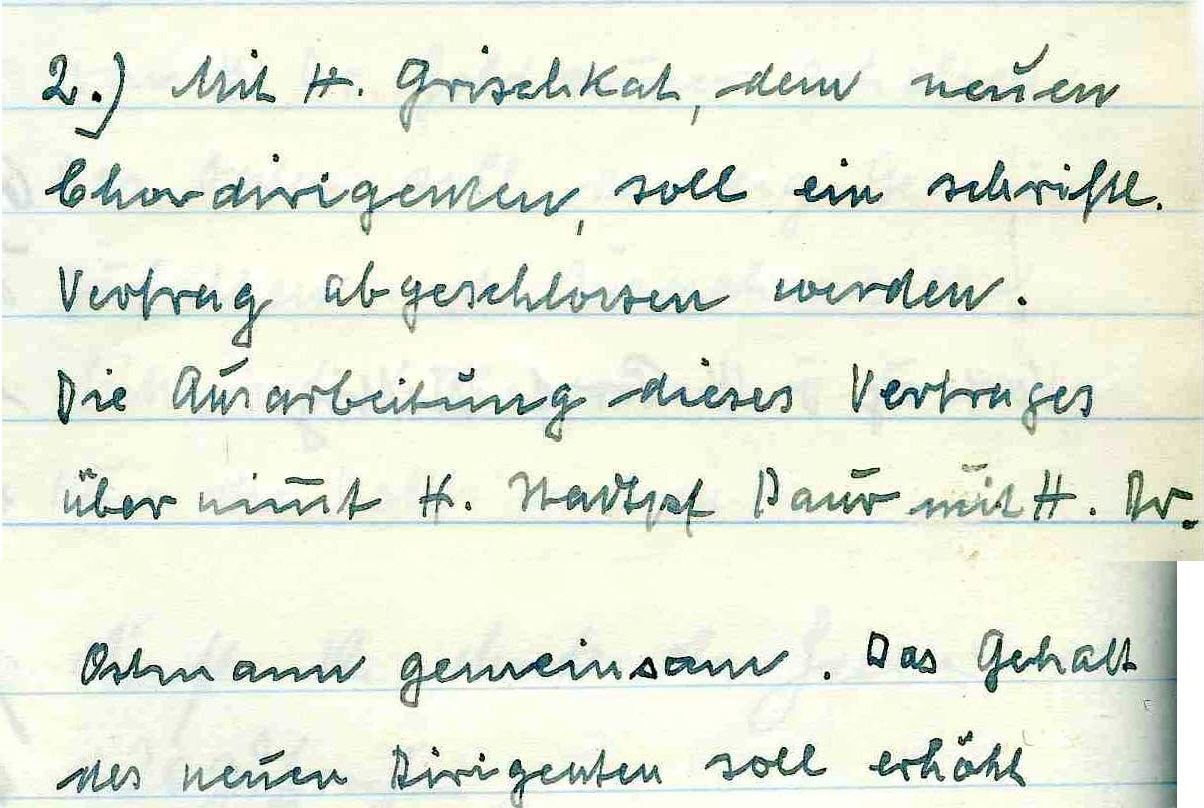 2.) Mit H. Grischkat, dem neuen
Chordirigenten, soll ein schriftl.
Vertrag abgeschlossen werden.
Die Ausarbeitung dieses Vertrages
übernim̅t H. Stadtpf Daur mit H. Dr.
Ostmann gemeinsam. Das Gehalt
des neuen Dirigenten soll erhöht